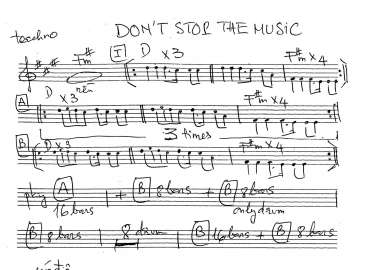 DON'T STOP THE MUSIC
techno F#m I D x3 F#m x4
A D x3 F#m x4
3 times
B D x3 F#m x4
play A + B 8 bars + B 8 bars
16 bars only drum
B 8 bars 8 drum B 16 bars + B 8 bars